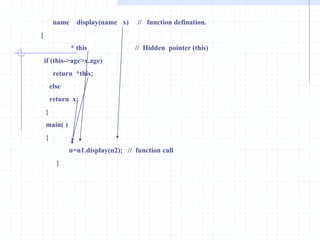 name display(name x) // function defination.
{
* this // Hidden pointer (this)
if (this->age>x.age)
return *this;
else
return x;
}
main( )
{
n=n1.display(n2); // function call
}